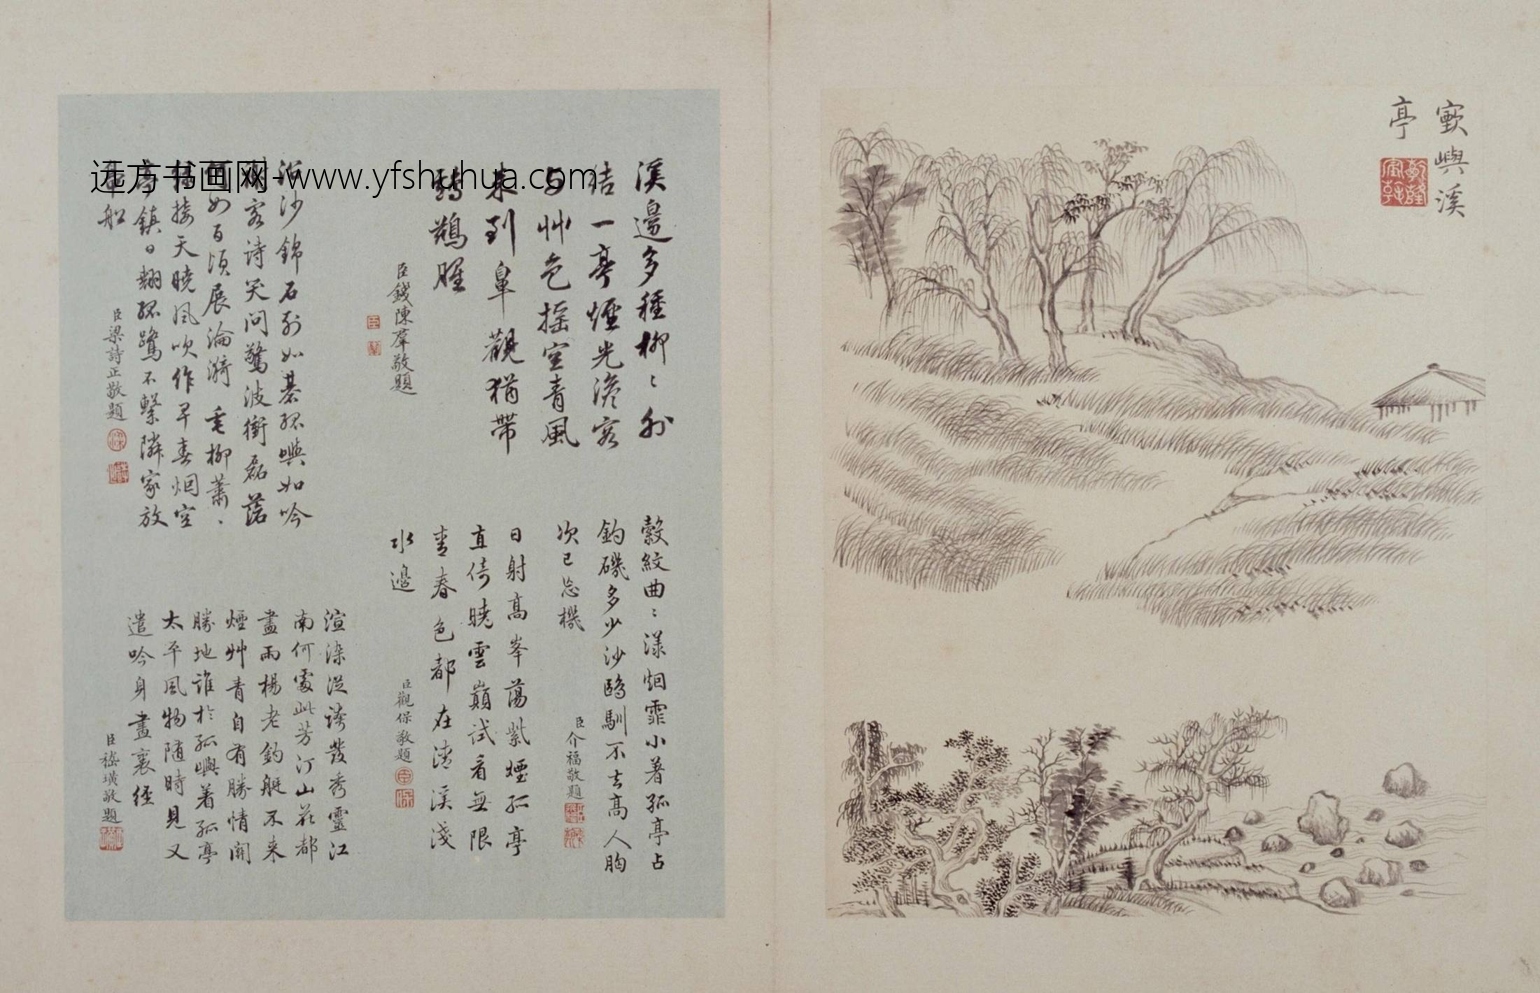 敤嶼溪
亭
乾隆宸翰
溪邊多種柳〻外
結一亭煙光澹容
與艸色搖空青風
來到皐觀猶帶
鵝鶄腥
臣錢陳羣敬題
沙錦石列如碁孤嶼如吟
客詩笑問驚波衝磊落
如百頃展淪漪垂柳蕭〻
接天曉風吹作早春烟空
亭鎮日翹孤鷺不繫隣家放
船
臣梁詩正敬題
縠紋曲〻漾烟霏小著孤亭占
釣磯多少沙鷗馴不去高人胸
次已忘機
臣介福敬題
日射高峯蕩紫煙孤亭
直倚曉雲巔試看無限
青春色都在清溪淺
水邊
臣觀保敬題
渲染從誇發秀靈江
南何處此芳汀山花都
盡雨楊老釣艇不来
煙艸青自有勝情開
勝地誰於孤嶼著孤亭
太平風物隨時見又
遣吟身畫裏經
臣嵇璜敬題
远方书画网-www.yfshuhua.com